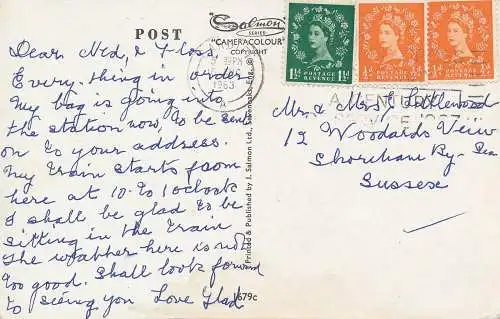 POST
"Salmon"
SERIES
"CAMERACOLOUR"
COPYRIGHT
Dear Ned, & Floss
Every-thing in order
My bag is going into
the station now, to be sent
on to your address.
My train starts from
here at 10-to 1 oclock
I shall be glad to be
sitting in the train
The weather here is not
too good. Shall look forward
to seeing you Love Glad
Printed & Published by J. Salmon Ltd., Sevenoaks, Eng.
679c
PM
1963
1½D POSTAGE REVENUE 1½D
½D POSTAGE REVENUE ½D
½D POSTAGE REVENUE
Mr. & Mrs. Littlewood
12 Woodards View
Shoreham By- Sea
Sussex